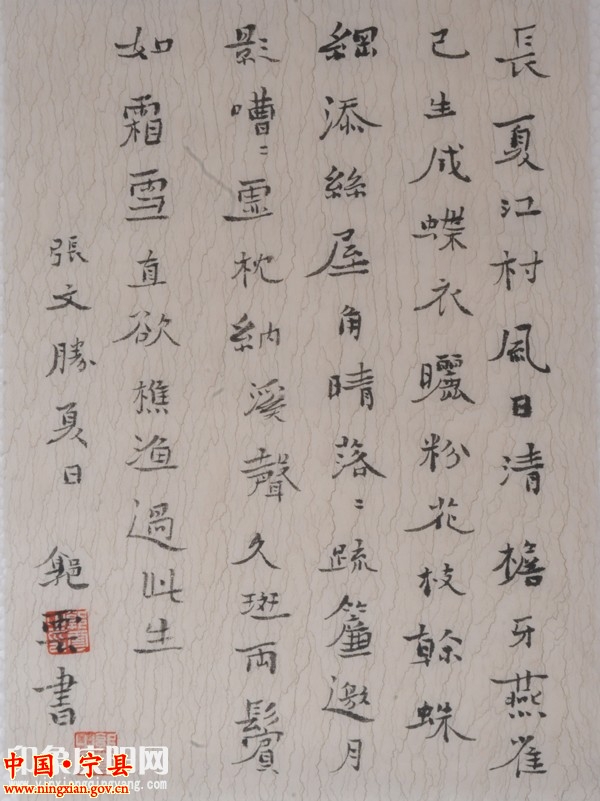 長夏江村風日清檐牙燕雀
已生成蝶衣曬粉花枝蛛
網添絲屋角晴落：疏簾邀月
影嘈：虛枕納溪聲久斑兩鬢
如霜雪直欲樵漁過此生
張文勝夏日 雲書
印象庆阳网
www.yinxiangqingyang.com
中国·宁县
www.ningxian.gov.cn